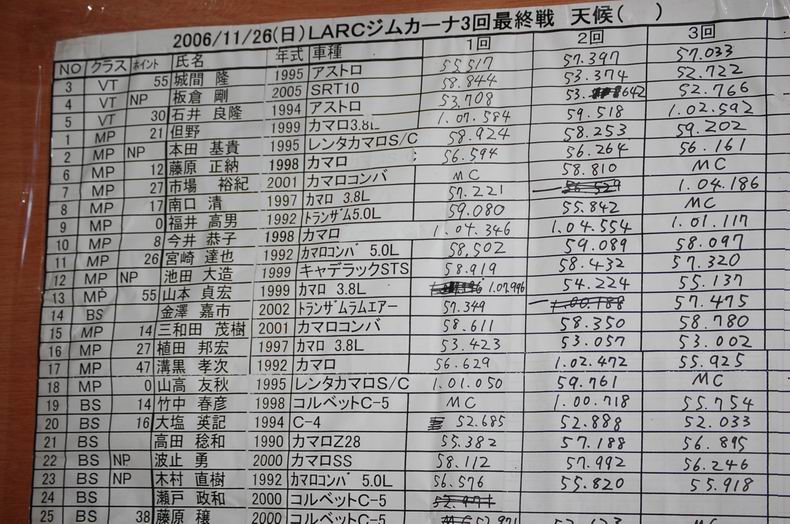 2006/11/26(日)LARCジムカーナ3回最終戦 天候( )
NO クラス ポイント 氏名 年式 車種 1回 2回 3回
3 VT 55 城間 隆 1995 アストロ 55.517 57.397 57.033
4 VT NP 板倉 剛 2005 SRT10 58.844 53.374 52.722
5 VT 30 石井 良隆 1994 アストロ 53.708 53.642 52.766
1 MP 21 但野 1999 カマロ3.8L 1.07.584 59.518 1.02.592
2 MP NP 本田 基貴 1995 レンタカマロS/C 58.924 58.253 59.202
6 MP 12 藤原 正納 1998 カマロ 56.594 56.264 56.161
7 MP 27 市場 裕紀 2001 カマロコンバ MC 58.810 MC
8 MP 17 南口 清 1997 カマロ 3.8L 57.221 56.529 1.04.186
9 MP 0 福井 高男 1992 トランザム5.0L 59.080 55.842 MC
10 MP 8 今井 恭子 1998 カマロ 1.04.346 1.04.554 1.01.117
11 MP 26 宮崎 達也 1992 カマロコンバ 5.0L 58.502 59.089 58.097
12 MP NP 池田 大造 1999 キャデラックSTS 58.919 58.432 57.320
13 MP 55 山本 貞宏 1999 カマロ 3.8L 1.07.996 54.224 55.137
14 BS 金澤 嘉市 2002 トランザムラムエアー 57.349 1.00.188 57.475
15 MP 14 三和田 茂樹 2001 カマロコンバ 58.611 58.350 58.780
16 MP 27 植田 邦宏 1997 カマロ 3.8L 53.423 53.057 53.002
17 MP 47 溝黒 孝次 1992 カマロ 56.629 1.02.472 55.925
18 MP 0 山高 友秋 1995 レンタカマロS/C 1.01.050 59.761 MC
19 BS 14 竹中 春彦 1998 コルベットC-5 MC 1.00.718 55.754
20 BS 16 大塩 英記 1994 C-4 52.685 52.888 52.033
21 BS 高田 稔和 1990 カマロZ28 55.382 57.188 56.895
22 BS NP 波止 勇 2000 カマロSS 58.112 57.992 56.246
23 BS NP 木村 直樹 1992 カマロコンバ 5.0L 56.576 55.820 55.918
24 BS 瀬戸 政和 2000 コルベットC-5 52.971
25 BS 38 藤原 穣 2000 コルベットC-5 52.971